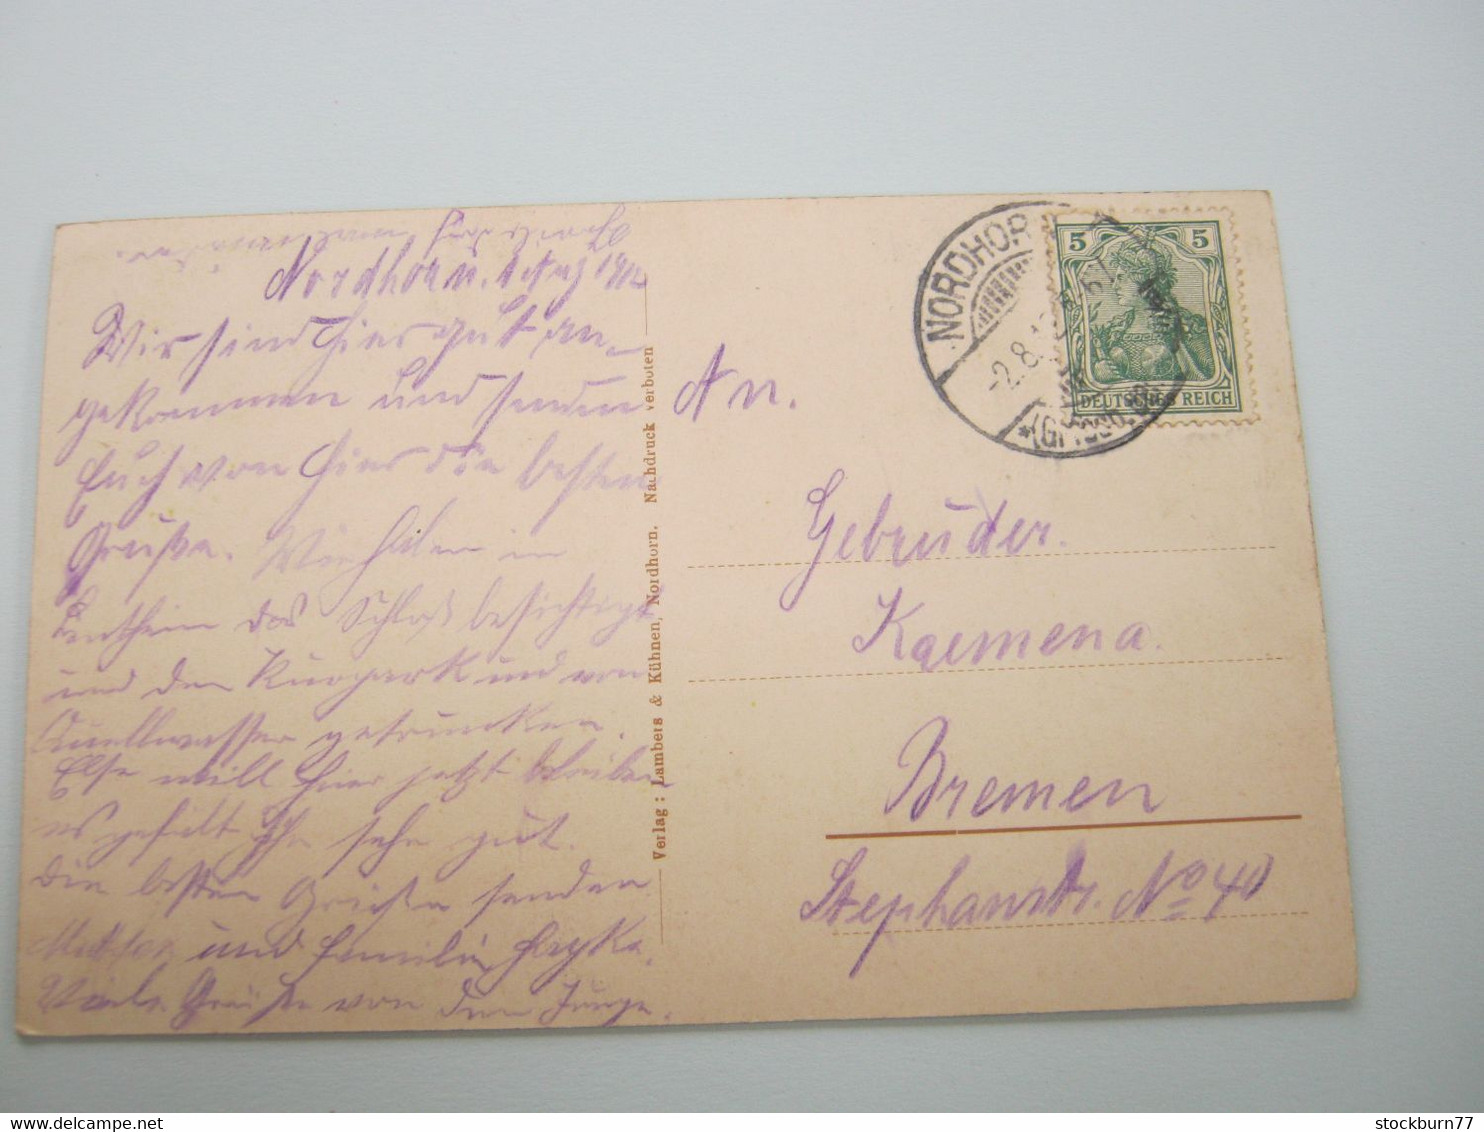 Nordhorn. 1912
Wir sind hier gut an-
gekommen und senden
Euch von hier die besten
Grüße. Wir haben in
Bentheim das Schloß besichtigt
und den Kurpark und von
Quellwasser getrunken.
Else will hier jetzt bleiben
es gefällt Ihr sehr gut.
Die besten Grüße senden
und Familie
Viele Grüße von dem Junge.
Verlag: Lambers & Kühnen, Nordhorn. Nachdruck verboten
NORDHORN
-2.8.12
5 5
DEUTSCHES REICH
An.
Gebrüder.
Kaemena.
Bremen
Stephanstr. No 40
stockburn77
www.delcampe.net
stockburn77